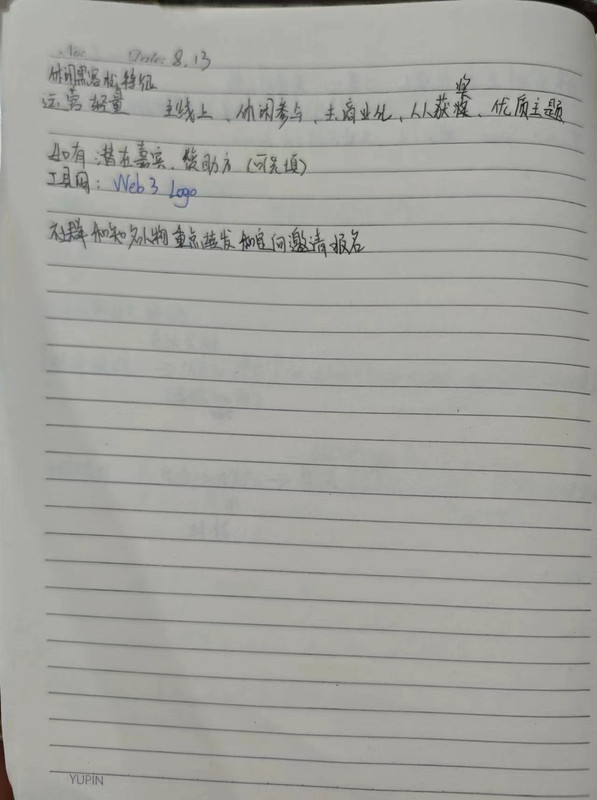 No: Date: 8.13
休闲黑客松特征
运营轻量 主线上、休闲参与、去商业化、人人获奖、优质主题
如有潜在嘉宾、赞助方(可先填)
工具网: Web3 Logo
社群和知名人物重点转发和定向邀请报名
YUPIN